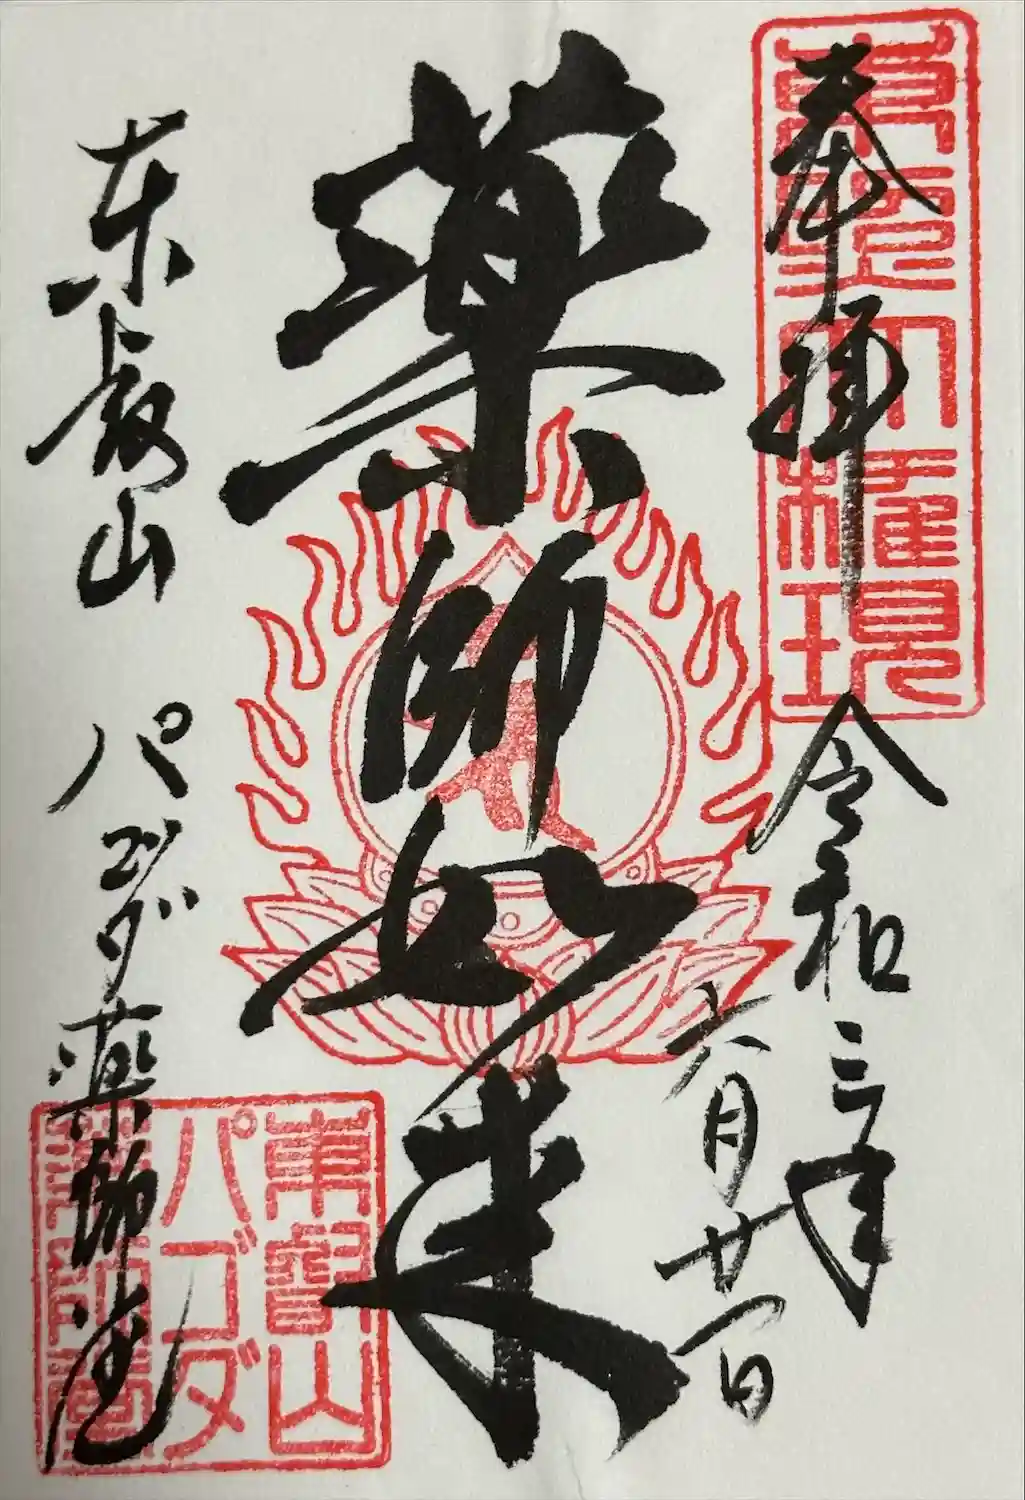 奉拝
令和三年
六月廿一日
東照大権現
薬師如来
東叡山
パゴダ薬師堂
東叡山
パゴダ
薬師堂